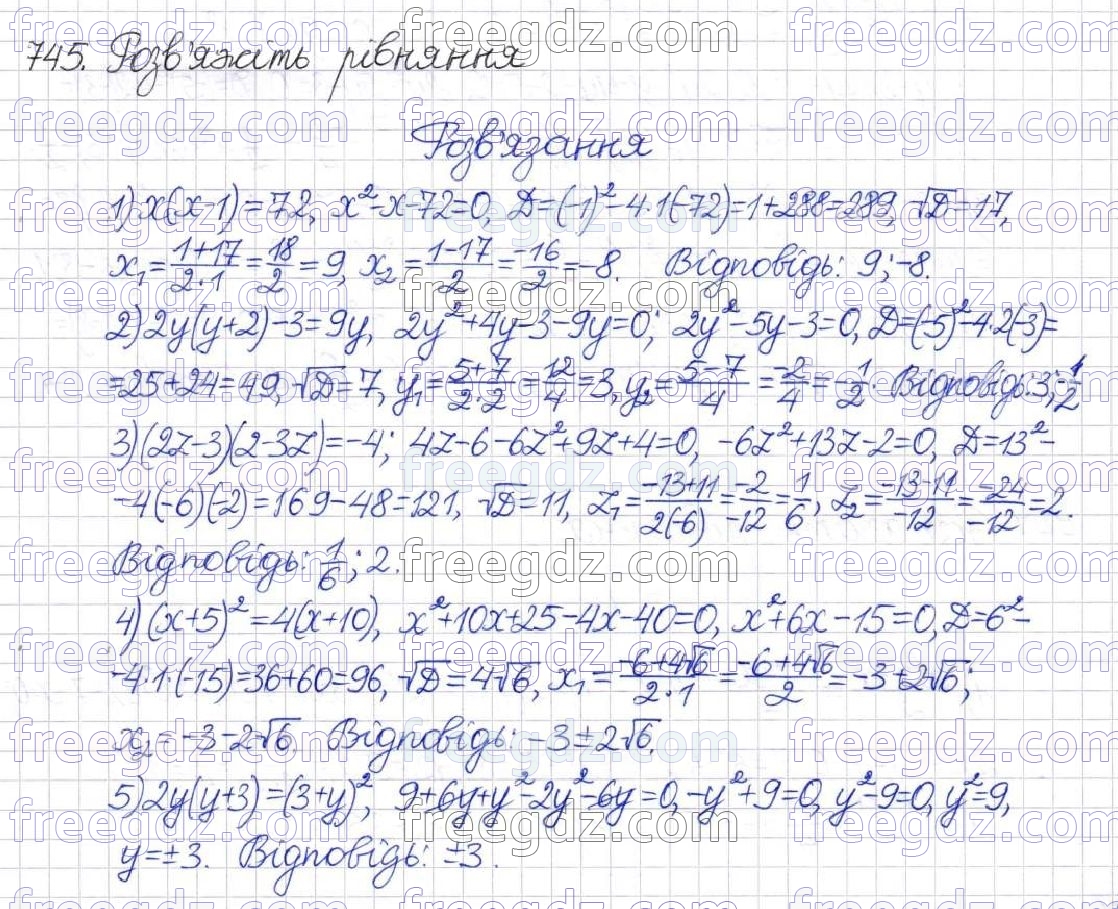 745. Розв'яжіть рівняння
Розв'язання
1) x(x-1)=72, x²-x-72=0, D=(-1)²-4·1(-72)=1+288=289, √D=17,
x₁=(1+17)/(2·1)=18/2=9, x₂=(1-17)/2=-16/2=-8. Відповідь: 9; -8.
2) 2y(y+2)-3=9y, 2y²+4y-3-9y=0; 2y²-5y-3=0, D=(-5)²-4·2(-3)=
=25+24=49, √D=7, y₁=(5+7)/(2·2)=12/4=3, y₂=(5-7)/4=-2/4=-1/2. Відповідь: 3; -1/2
3) (2z-3)(2-3z)=-4; 4z-6-6z²+9z+4=0, -6z²+13z-2=0, D=13²-
-4(-6)(-2)=169-48=121, √D=11, z₁=(-13+11)/(2(-6))=-2/-12=1/6, z₂=(-13-11)/-12=-24/-12=2.
Відповідь: 1/6; 2.
4) (x+5)²=4(x+10), x²+10x+25-4x-40=0, x²+6x-15=0, D=6²-
-4·1·(-15)=36+60=96, √D=4√6, x₁=(-6+4√6)/(2·1)=(-6+4√6)/2=-3+2√6;
x₂=-3-2√6 Відповідь: -3±2√6.
5) 2y(y+3)=(3+y)², 9+6y+y²-2y²-6y=0, -y²+9=0, y²-9=0, y²=9,
y=±3. Відповідь: ±3.
freegdz.com